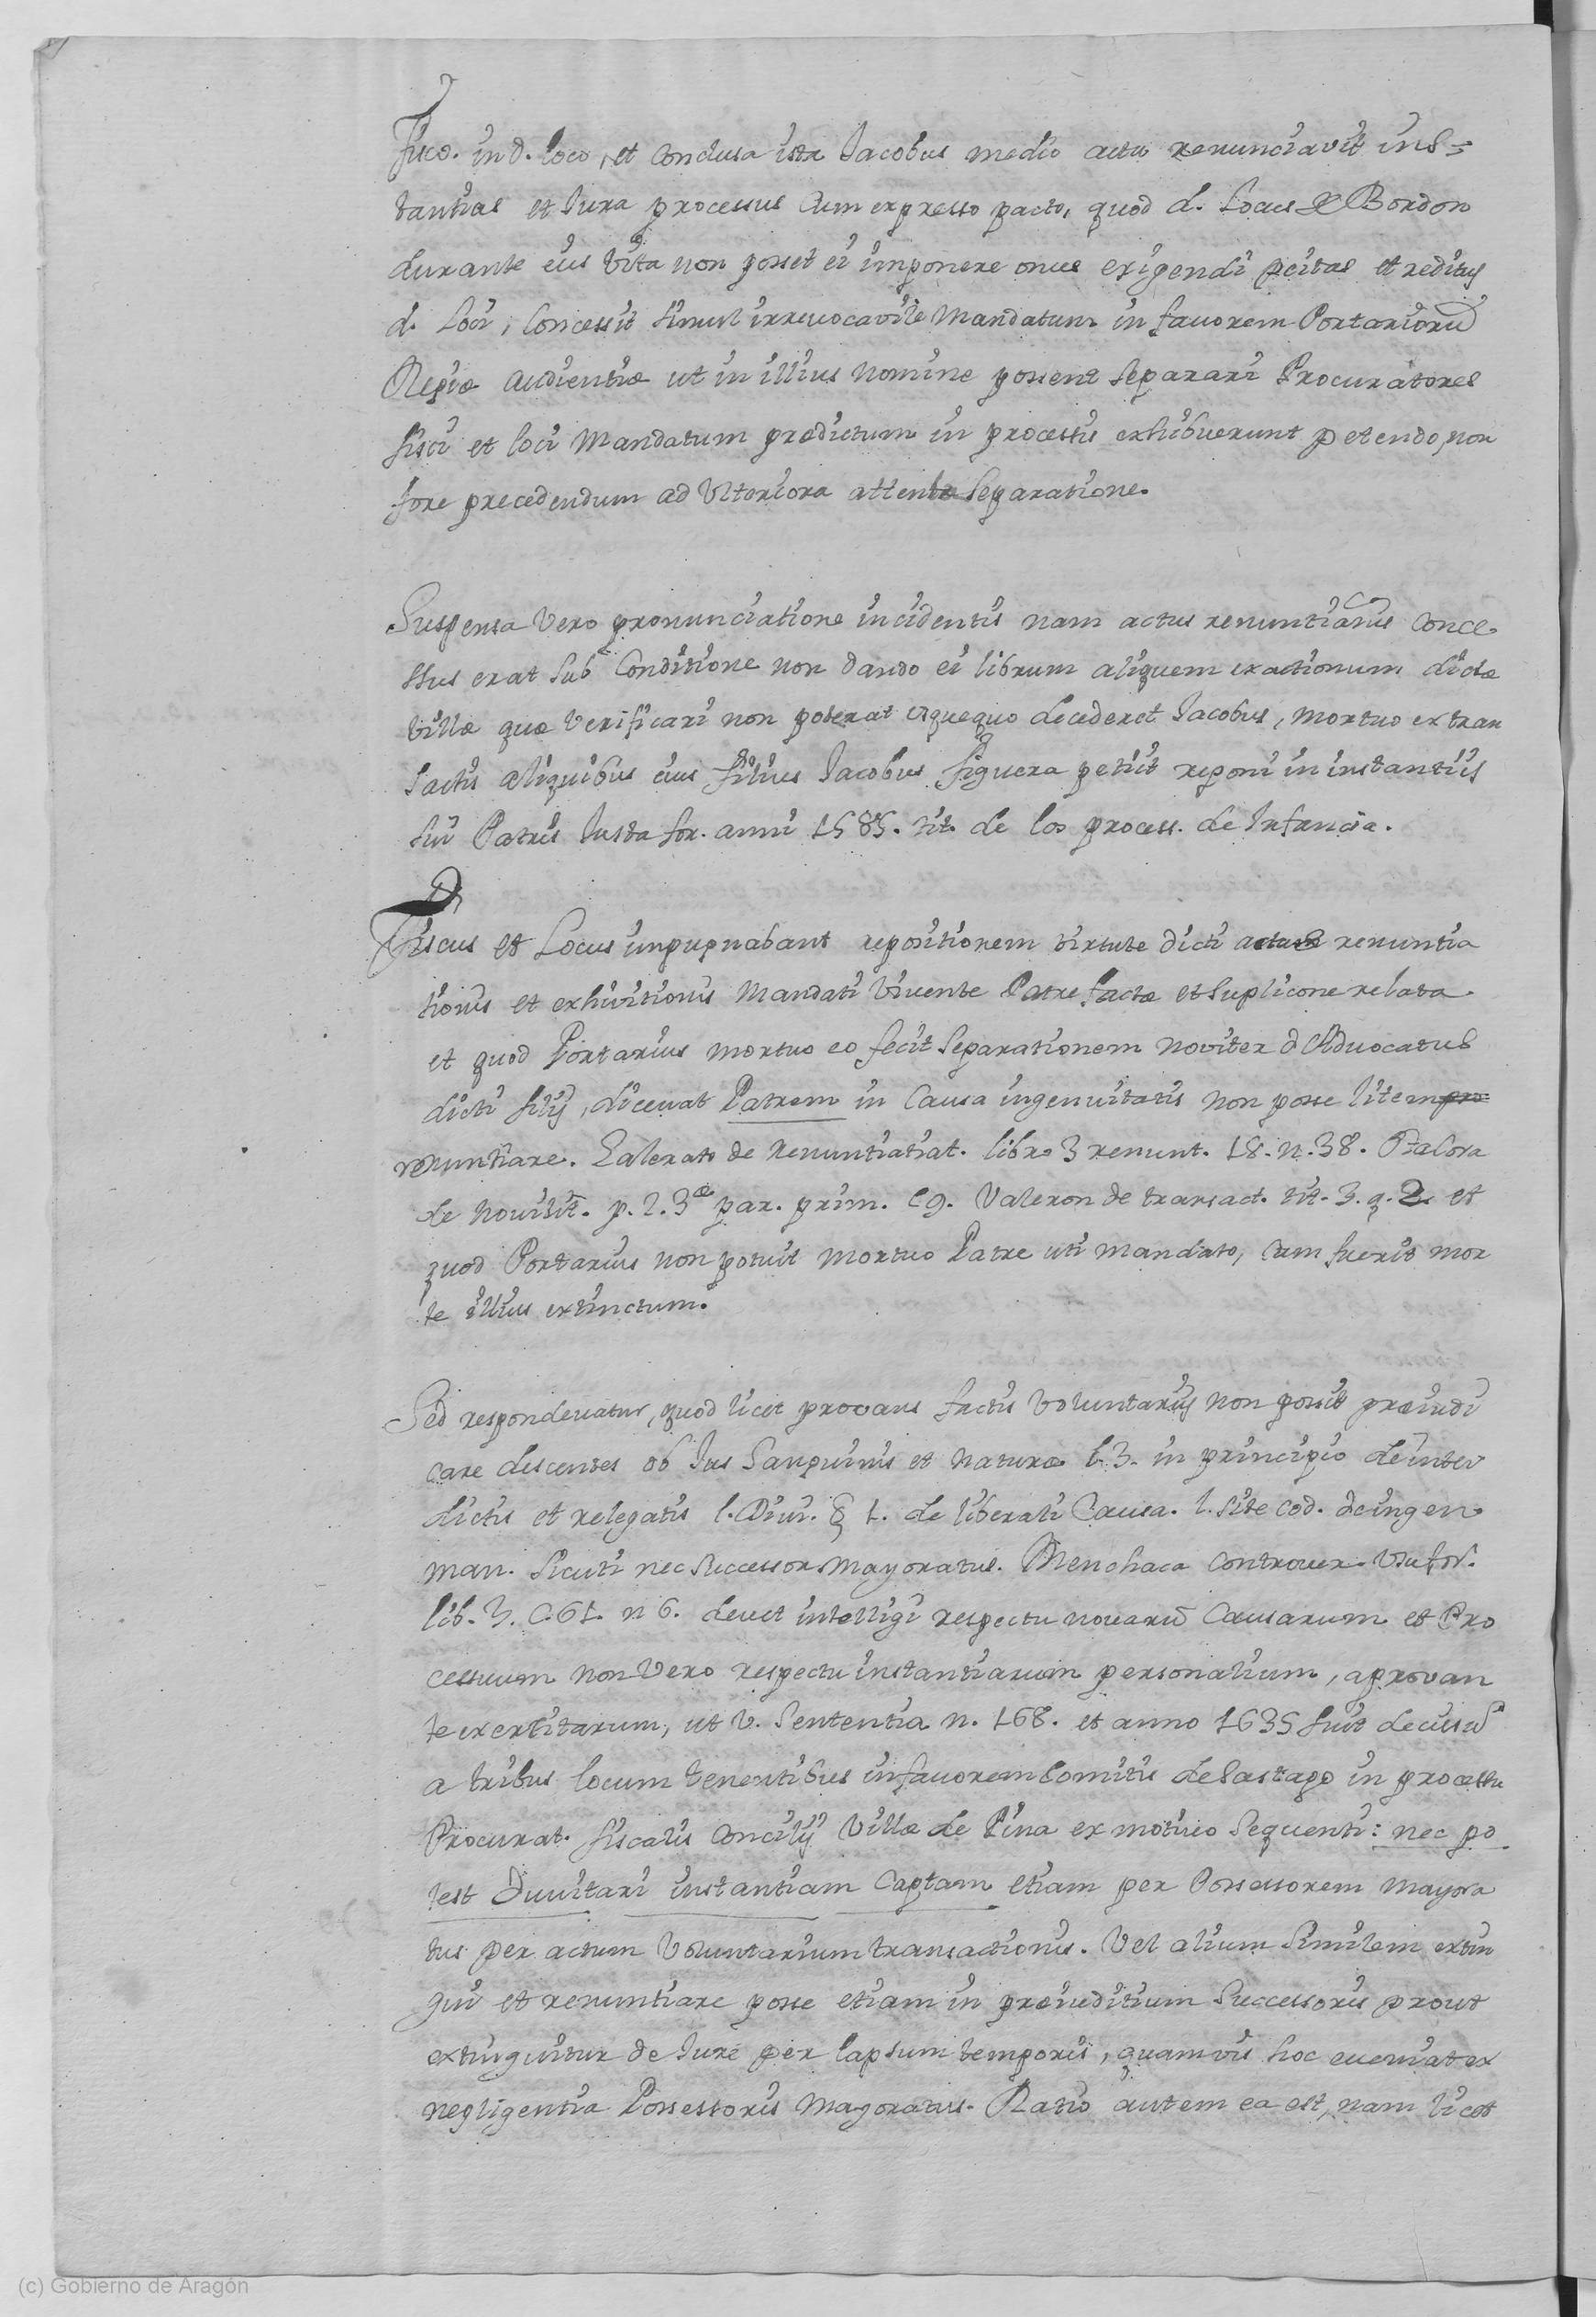 Fisco. in d. loco, et conclusa ista Jacobus medio actu renunciavit ins=
tantias et Jura processus Cum expresso pacto, quod d. Locus de Bordon
durante eius vita non posset ei imponere onus exigendi peitas et reditus
d. Loci, Concessit simul irrevocavile Mandatum in favorem Portariorũ
Regiæ Audientiæ ut in illius nomine possent separari Procuratores
fisci et loci Mandatum prædictum in processu exhibuerunt petendo, non
fore precedendum ad Vlteriora attenta Separatione.
Suspensa vero pronunciatione incidentis nam actus renuntianis conce-
ssus erat sub Conditione non dando ei librum aliquem exactionum dictæ
villæ quæ Verificari non poterat usquequo decederet Jacobus, mortuo ex tran
sactis aliquibus eius filius Jacobus figuera petiit reponi in instantiis
sui Patris Justa for. anni 1585. tit. de los process. de Infancia.
Fiscus et Locus impugnabant repositionem virtute dicti actus renuntia
tionis et exhivitionis Mandati Vivente Patre factæ et suplicone relata
et quod Portarius mortuo eo fecit Separationem noviter d Advocatus
dicti filij, dicevat Patrem in Causa ingenuitatis non posse litem pro
renuntiare. Galerato de Renuntiatiat. libro 3 renunt. 18. n. 38. Otalora
de Nouilit. p. 2. 3æ par. prim. c 9. Valeron de transact. tit. 3. q. 2. et
quod Portarius non potuit mortuo Patre uti mandato, cum fuerit mor
te illius extinctum.
Sed respondevatur, quod licet provans factis voluntarijs non possit præiudi
care descentes ob Jus Sanguinis et naturæ l. 3. in principio de inter
dictis et relegatis l. Diui. § 1. de liberali Causa. l. site cod. de ingen
man. sicuti nec successor Mayoratus. Menchaca controuer. Vsufr.
lib. 3. C. 61. n 6. devet intelligi respectu novarũ Causarum et Pro
cessuum non vero respectu instantiarum personalium, a provan
te exercitarum, ut v. Sententia n. 168. et anno 1635 fuit decisũ
a tribus locum tenentibus in favorem Comitis de Sastago in processu
Procurat. fiscalis Concilij Villæ de Pina ex motivo Sequenti: nec po
test Duvitari instantiam Captam etiam per Possessorem mayora
tus per actum Voluntarium transactionis. Vel alium Similem extin
gui et renuntiare posse etiam in præiuditium Successoris prout
extinguitur de Jure per lapsum temporis, quamvis hoc eveniat ex
negligentia Possessoris Mayoratus. Ratio autem ea est, nam licet
(c) Gobierno de Aragón